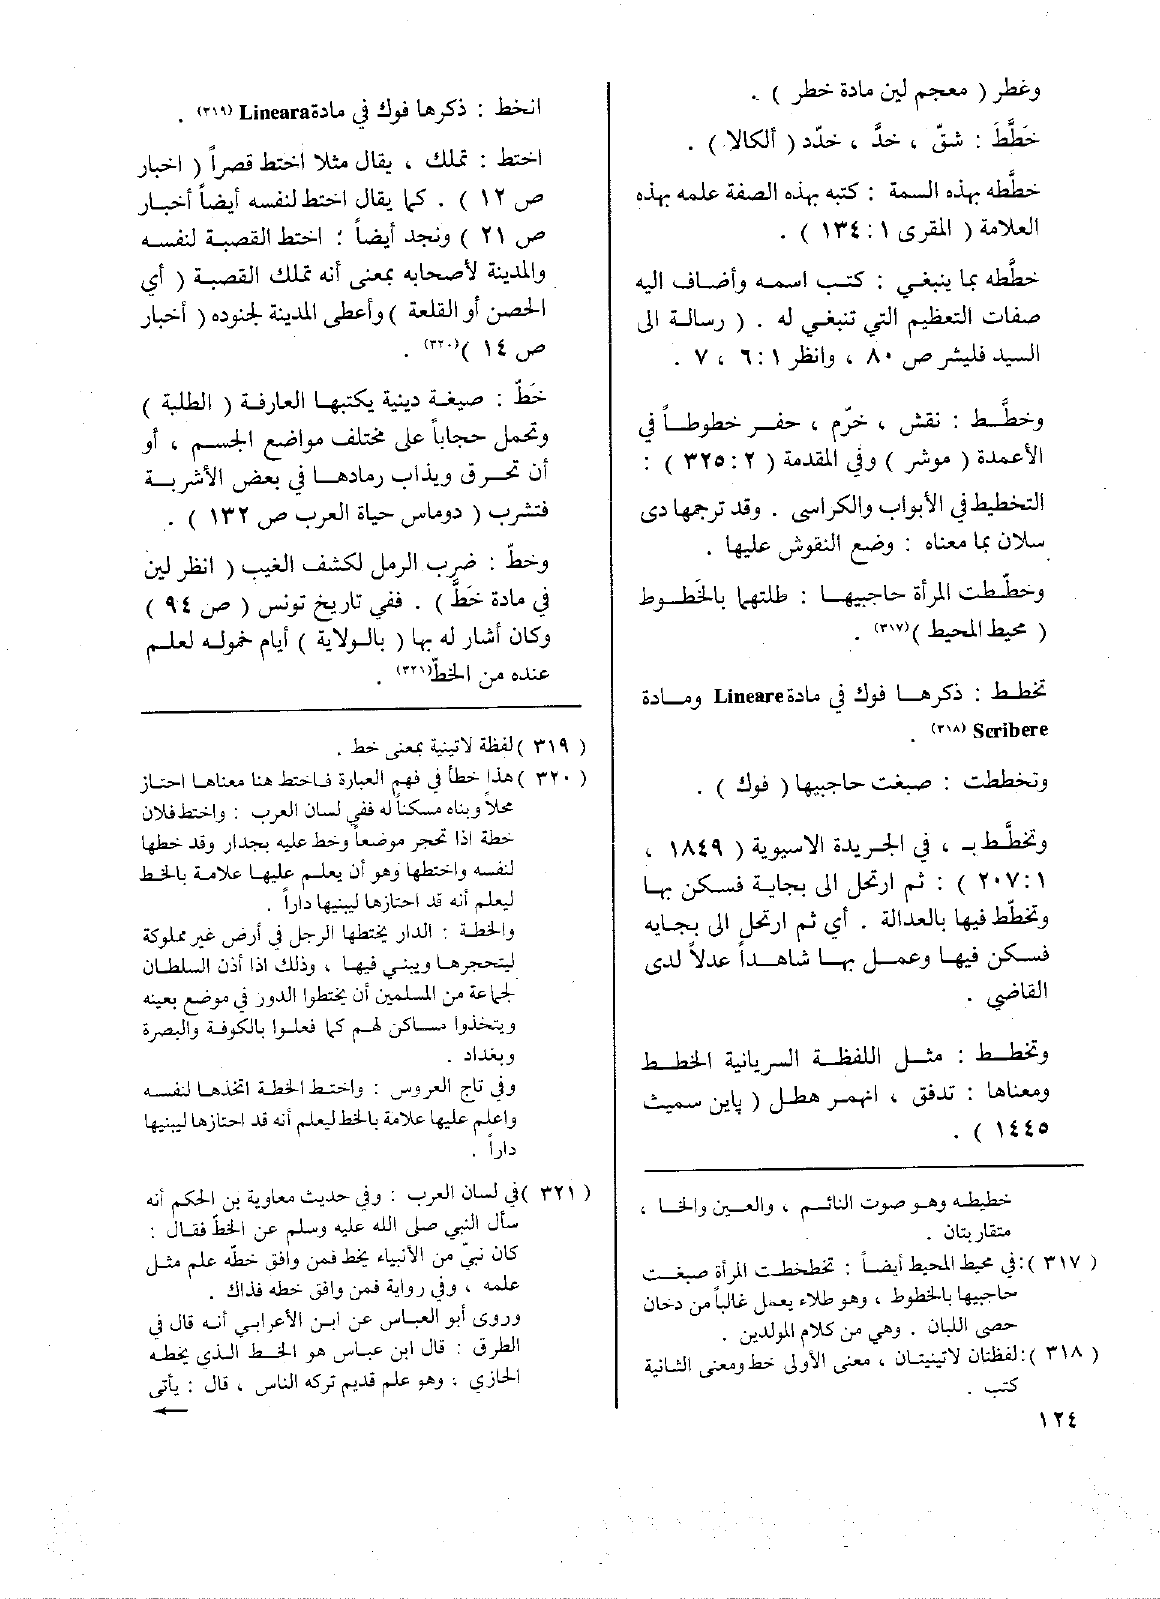 وغطر ( معجم لين مادة خطر ) .
خَطَّطَ : شقّ ، خدَّ ، خدّد ( ألكالا ) .
خطَّطه بهذه السمة : كتبه بهذه الصفة علمه بهذه
العلامة ( المقرى ١ : ١٣٤ ) .
خطَّطه بما ينبغي : كتب اسمه وأضاف اليه
صفات التعظيم التي تنبغي له . ( رسالة الى
السيد فليشر ص ٨٠ ، وانظر ١ : ٦ ، ٧ .
وخطَّط : نقش ، خرّم ، حفر خطوطاً في
الأعمدة ( موشر ) وفي المقدمة ( ٢ : ٣٢٥ ) :
التخطيط في الأبواب والكراسى . وقد ترجمها دى
سلان بما معناه : وضع النقوش عليها .
وخطّطت المرأة حاجبيها : طلتهما بالخَطوط
( محيط المحيط )(٣١٧) .
تخطط : ذكرها فوك في مادة Lineare ومادة
Scribere (٣١٨) .
وتخططت : صبغت حاجبيها ( فوك ) .
وتخطَّط بـ ، في الجريدة الاسيوية ( ١٨٤٩ ،
١ : ٢٠٧ ) : ثم ارتحل الى بجاية فسكن بها
وتخطّط فيها بالعدالة . أي ثم ارتحل الى بجايه
فسكن فيها وعمل بها شاهداً عدلاً لدى
القاضي .
وتخطط : مثل اللفظة السريانية الخطط
ومعناها : تدفق ، انهمر هطل ( پاين سميث
١٤٤٥ ) .
خطيطه وهو صوت النائم ، والعين والخا ،
متقاربتان .
( ٣١٧ ) : في محيط المحيط أيضاً : تخطخطت المرأة صبغت
حاجبيها بالخطوط ، وهو طلاء يعمل غالباً من دخان
حصى اللبان . وهي من كلام المولدين .
( ٣١٨ ) : لفظتان لاتينيتان ، معنى الأولى خط ومعنى الثانية
كتب .
١٢٤
انخط : ذكرها فوك في مادة Lineara (٣١٩) .
اختط : تملك ، يقال مثلا اختط قصراً ( اخبار
ص ١٢ ) . كما يقال اختط لنفسه أيضاً أخبار
ص ٢١ ) ونجد أيضاً : اختط القصبة لنفسه
والمدينة لأصحابه بمعنى أنه تملك القصبة ( أي
الحصن أو القلعة ) وأعطى المدينة لجنوده ( أخبار
ص ١٤ )(٣٢٠) .
خَطّ : صيغة دينية يكتبها العارفة ( الطلبة )
وتحمل حجاباً على مختلف مواضع الجسم ، أو
أن تحرق ويذاب رمادها في بعض الأشربة
فتشرب ( دوماس حياة العرب ص ١٣٢ ) .
وخطّ : ضرب الرمل لكشف الغيب ( انظر لين
في مادة خَطَّ ) . ففي تاريخ تونس ( ص ٩٤ )
وكان أشار له بها ( بالولاية ) أيام خموله لعلم
عنده من الخطّ(٣٢١) .
( ٣١٩ ) لفظة لاتينية بمعنى خط .
( ٣٢٠ ) هذا خطأ في فهم العبارة فاختط هنا معناها احتاز
محلاً وبناه مسكناً له ففي لسان العرب : واختط فلان
خطة اذا تحجر موضعاً وخط عليه بجدار وقد خطها
لنفسه واختطها وهو أن يعلم عليها علامة بالخط
ليعلم أنه قد احتازها ليبنيها داراً .
والخطة : الدار يختطها الرجل في أرض غير مملوكة
ليتحجرها ويبني فيها ، وذلك اذا أذن السلطان
لجماعة من المسلمين أن يختطوا الدور في موضع بعينه
ويتخذوا مساكن لهم كما فعلوا بالكوفة والبصرة
وبغداد .
وفي تاج العروس : واختط الخطة اتخذها لنفسه
واعلم عليها علامة بالخط ليعلم أنه قد احتازها ليبنيها
داراً .
( ٣٢١ ) في لسان العرب : وفي حديث معاوية بن الحكم أنه
سأل النبي صلى الله عليه وسلم عن الخطّ فقال :
كان نبيّ من الأنبياء يخط فمن وافق خطّه علم مثل
علمه ، وفي رواية فمن وافق خطه فذاك .
وروى أبو العباس عن ابن الأعرابي أنه قال في
الطرق : قال ابن عباس هو الخط الذي يخطه
الحازي ، وهو علم قديم تركه الناس ، قال : يأتى